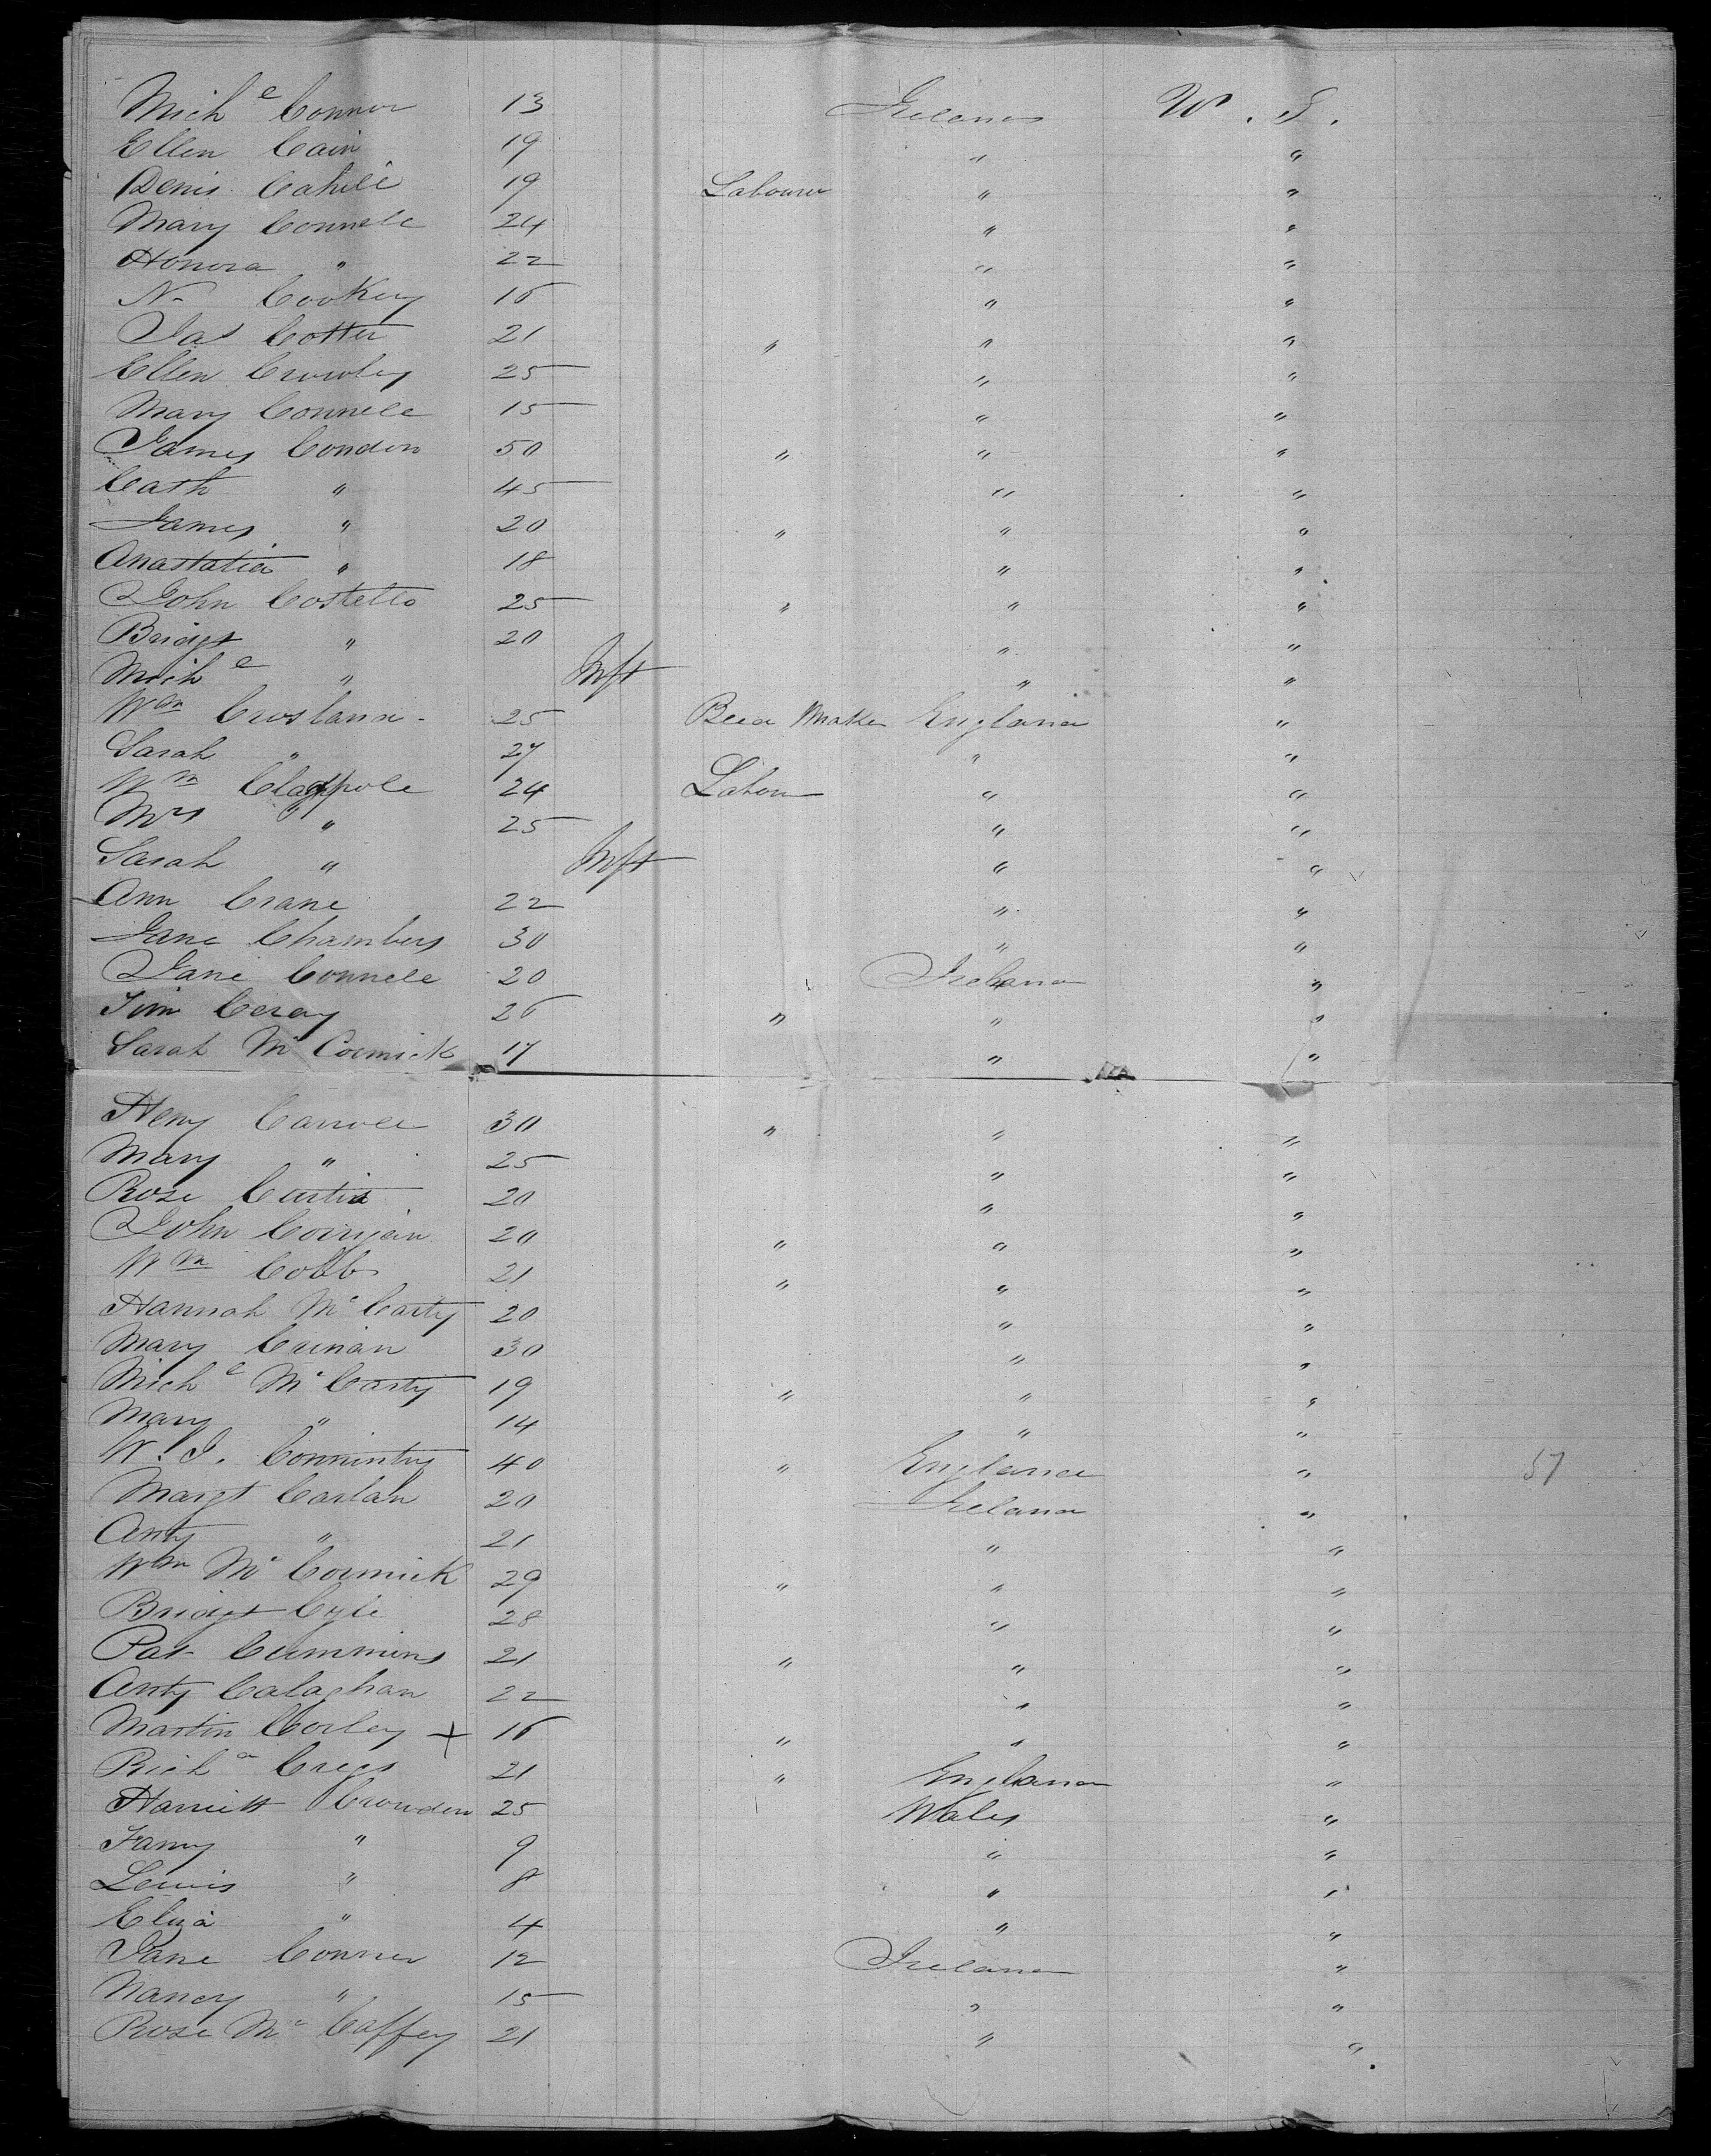 Mich l Connor 13 Ireland U. S.
Ellen Cain 19 " "
Denis Cahill 19 Labourer " "
Mary Connell 24 " "
Honora " 22 " "
N- Cookey 16 " "
Jas Cotter 21 " " "
Ellen Crowley 25 " "
Mary Connell 15 " "
James Condon 50 " " "
Cath " 45 " "
James " 20 " " "
Anastatia " 18 " "
John Costello 25 " " "
Bridgt " 20 " "
Mich l " Inft " "
Wm Crosland - 25 Maker England "
Sarah " 27 " "
Wm Claypole 24 Labour " "
Mrs " 25 " "
Sarah " Inft " "
Ann Crane 22 " "
Jane Chambers 30 " "
Jane Connell 20 Ireland "
Tim 26 " " "
Sarah Mc Cormick 17 " "
Heny Carroll 30 " " "
Mary " 25 " "
Rose Curtis 20 " "
John Corrigan 20 " " "
Wm Cobb 21 " " "
Hannah Mc Carty 20 " "
Mary 30 " "
Mich l Mc Carty 19 " " "
Mary " 14 " "
W. J. 40 " England " 57
Margt Carlan 20 Ireland "
Anty " 21 " "
Wm Mc Cormick 29 " " "
Bridgt Cyle 28 " "
Pat Cummins 21 " " "
Anty Calaghan 22 " "
Martin Corley + 16 " " "
Rich d 21 " England "
Harriett Crowden 25 Wales "
Fanny " 9 " "
Lewis " 8 " "
Eliza " 4 " "
Jane Conner 12 Ireland "
Nancy " 15 " "
Rose Mc Caffey 21 " "